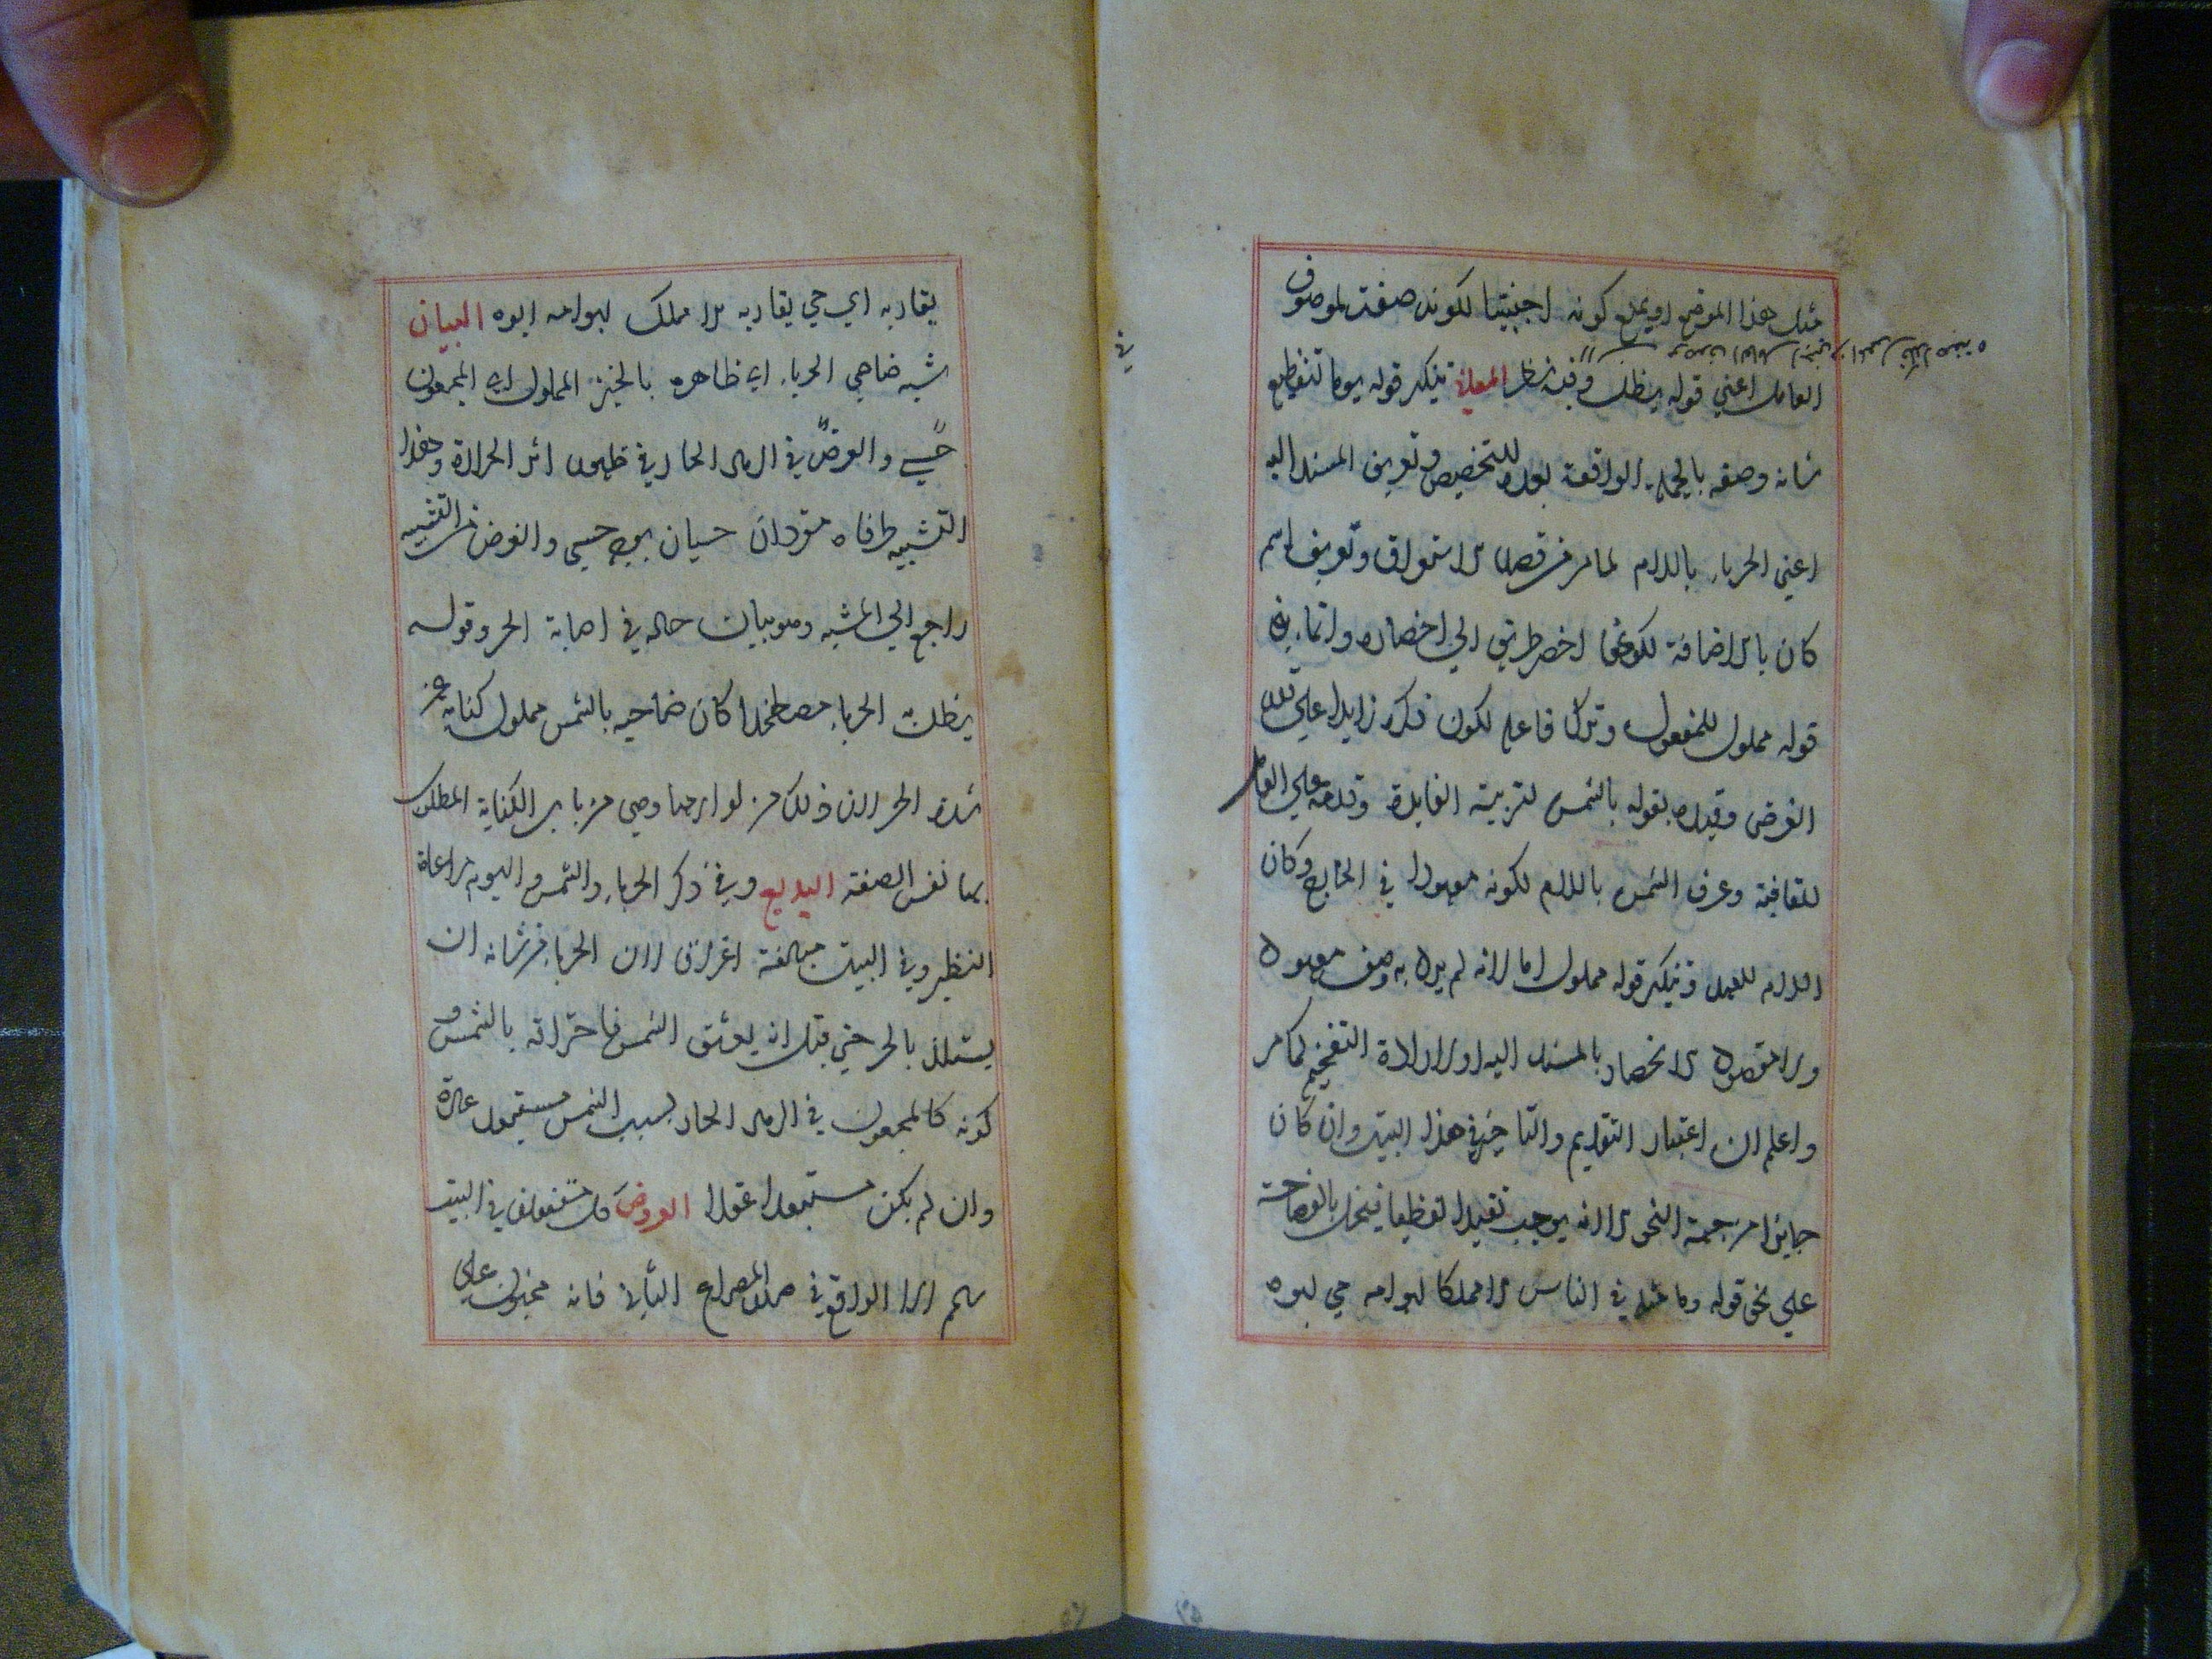 مثل هذا الموضع او يمنع كونه اجنبيا لكونه صفة لموصوف
العامل اعني قوله يظل وفيه نظر المعاني تنكير قوله يوما لتفظيع
شانه وصفه بالجملة الواقعة بعده للتخصيص وتعريف المسند اليه
اعني الحرباء باللام لما مر من قصد الاستغراق وتعريف اسم
كان بالاضافة لكونها اخصر طريق الي احضاره وانما بني
قوله مملول للمفعول وترك فاعله لكون ذكره زايدا علي قدر
الغرض وقيده بقوله بالشمس لتربية الفايدة وقدمه علي العامل
للقافية وعرف الشمس باللام لكونه معهودا في الخارج وكان
اللام للعهد وتنكير قوله مملول اما لانه لم يرد به وصف معهود
ولا مقصود الانحصار بالمسند اليه او لارادة التفخيم كما مر
واعلم ان اعتبار التقديم والتاخير في هذا البيت وان كان
جايزا من جهة النحو الا انه يوجب تعقيدا لفظيا فيخل بالفصاحة
علي نحو قوله وما مثله في الناس الا مملكا ابو امه حي ابوه
يقاربه اي حي يقاربه الا مملك ابو امه ابوه البيان
شبه ضاحي الحرباء اي ظاهره بالخبز المملول اي المجعول
في الرماد الحار في ظهور اثر الحرارة وهذا
التشبيه طرفاه مفردان حسيان بوجه حسي والغرض من التشبيه
راجع الي المشبه وهو بيان حاله في اصابة الحر وقوله
يظل به الحرباء مصطخدا كان ضاحيه بالشمس مملول كناية عن
شدة الحر لان ذلك من لوازمها وهي من باب الكناية المطلوب
بها نفس الصفة البديع وفي ذكر الحرباء والشمس واليوم مراعاة
النظير وفي البيت مبالغة اغراق لان الحرباء من شانه ان
يستلذ بالحر حتي قيل انه يعشق الشمس فاحتراقه بالشمس و
كونه كالمجعول في الرماد الحار بسبب الشمس مستبعد عادة
وان لم يكن مستبعدا عقلا العروض كل مستفعلن في البيت
سالم الا الواقع في صدر المصراع الثاني فانه مخبون علي